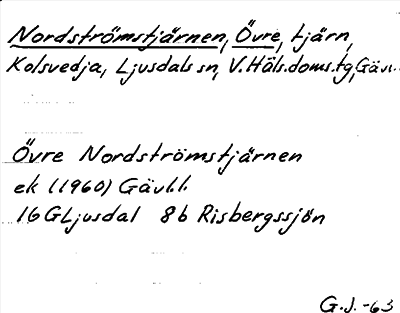 Nordströmstjärnen, Övre, tjärn,
Kolsvedja, Ljusdals sn, V.Häls.doms.tg, Gävl.
Övre Nordströmstjärnen
ek (1960) Gävl.l.
16G Ljusdal 8b Risbergssjön
G.J. -63